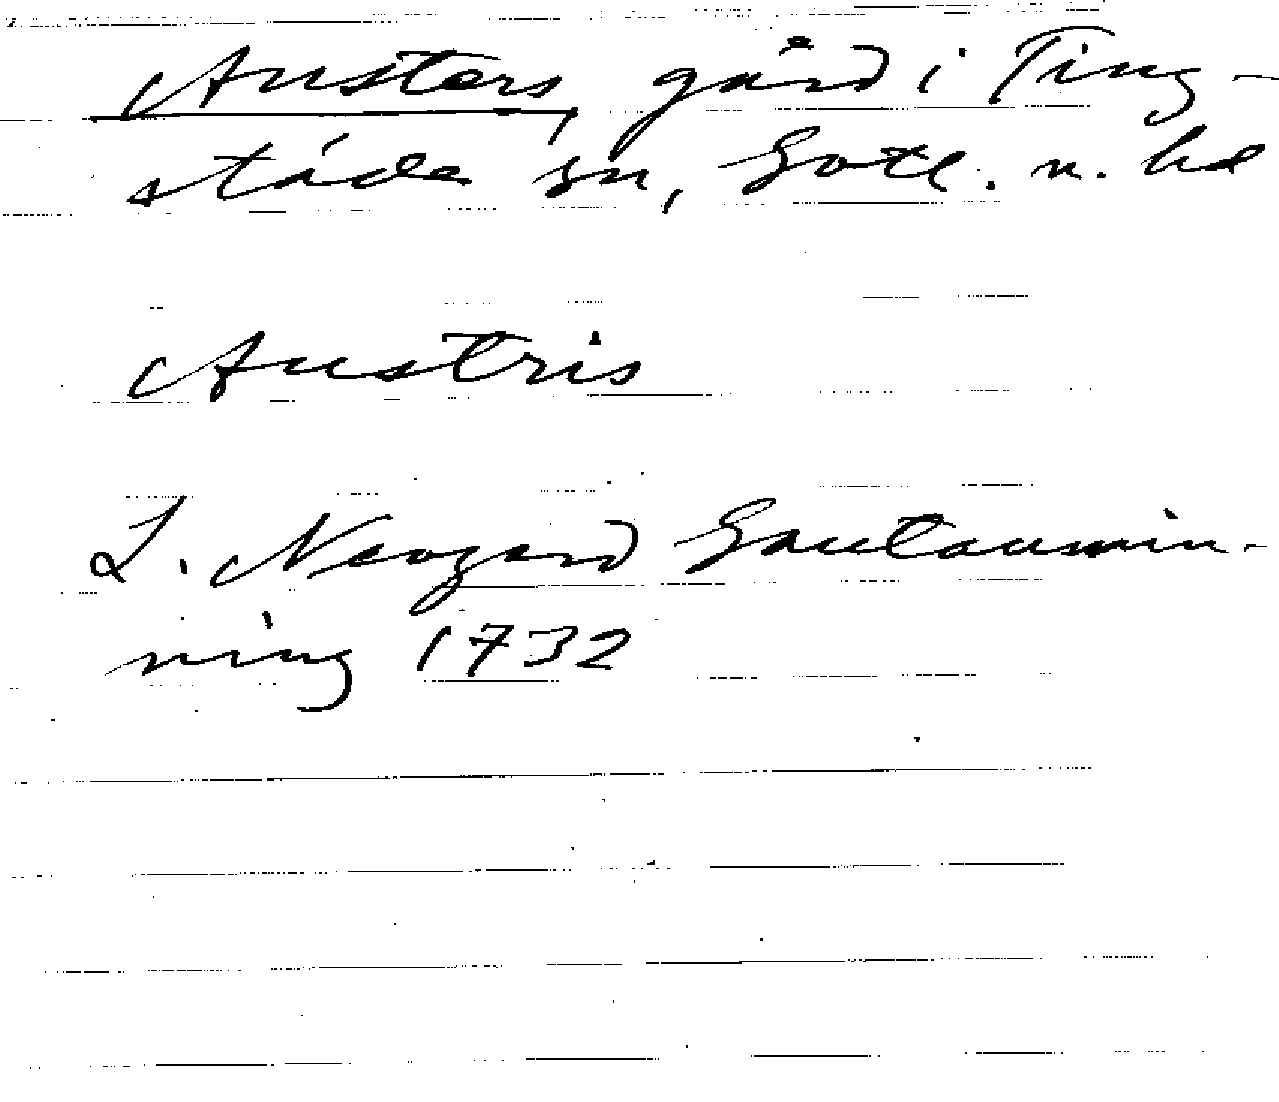 Austers, gård i Ting-
städe sn, Gotl. n. hd
Austris
L. Neogard Gautauminn-
ning 1732